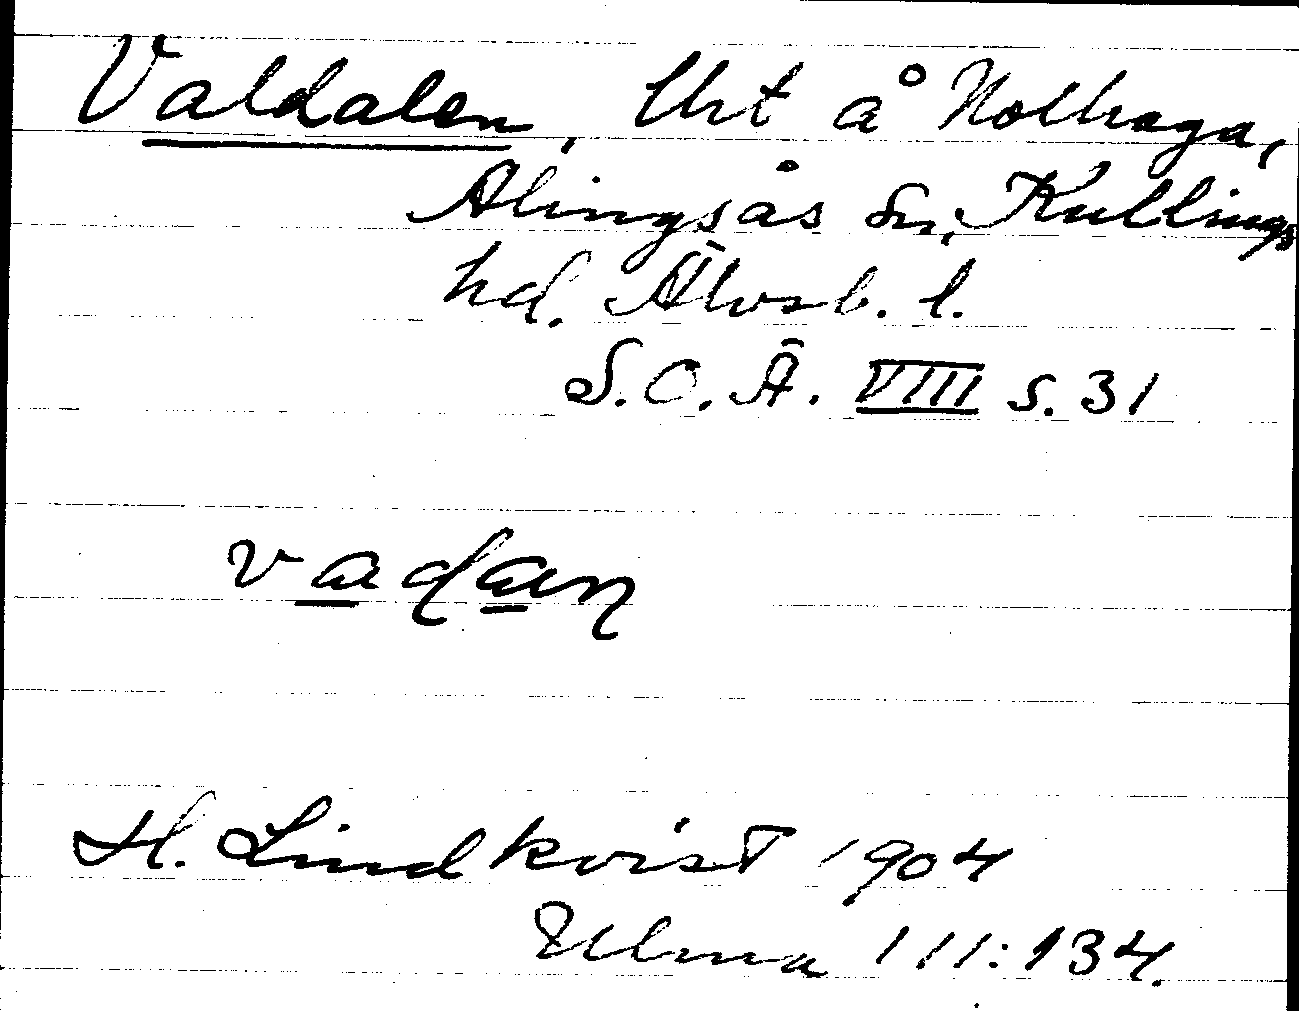 Valdalen, Urt å Nolhaga,
Alingsås Sn, Kullings
hd. Älvsb. l.
S.O.Ä. VIII s. 31
vadan
H. Lindkvist 1904
Ulma 111:134.